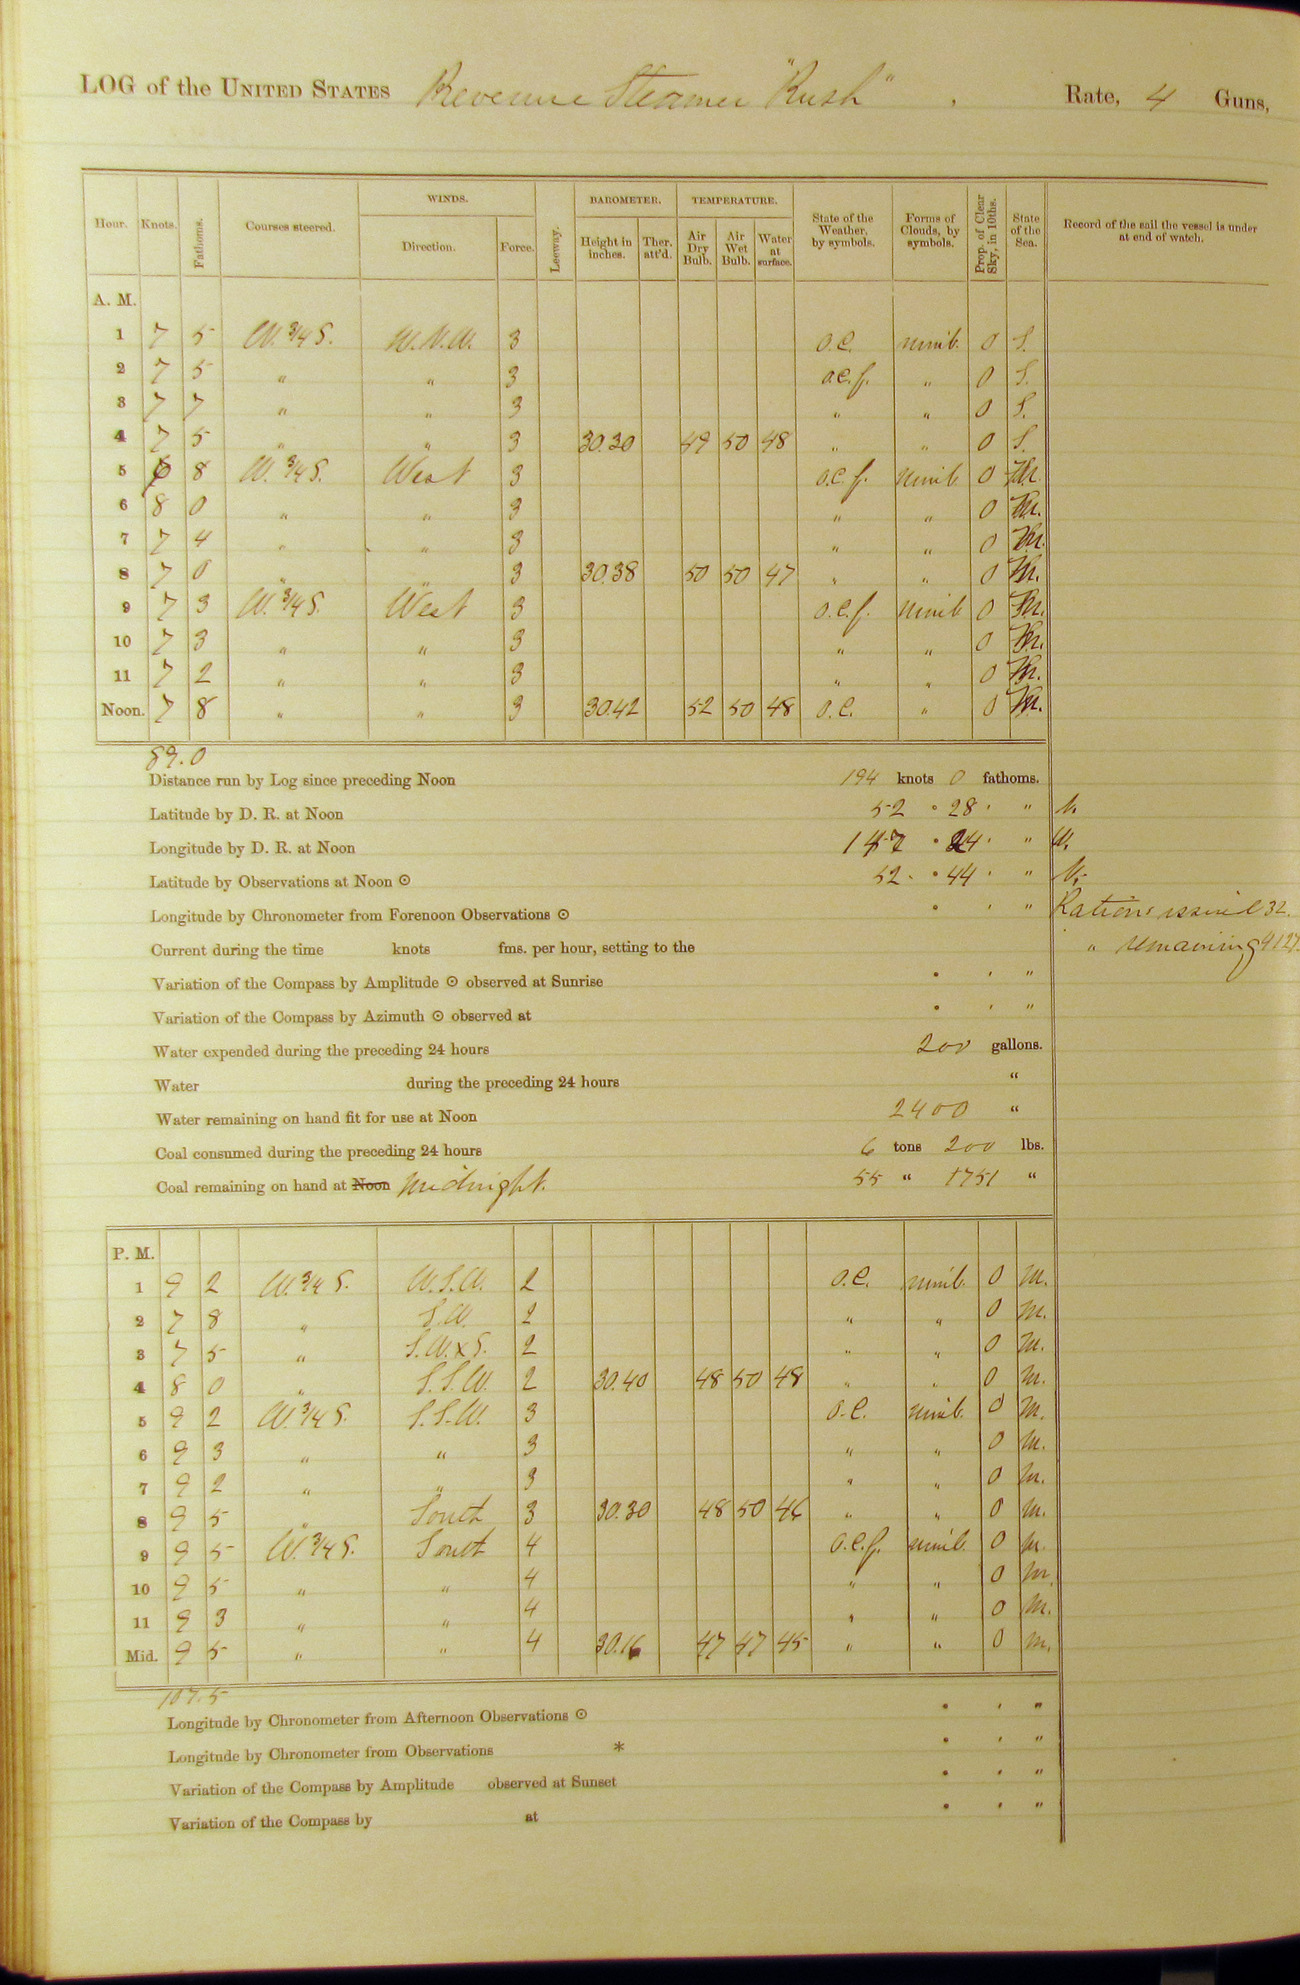 LOG of the UNITED STATES Revenue Steamer "Rush", Rate, 4 Guns,
Hour. Knots. Fathoms. Courses steered. WINDS. Direction. Force. Leeway. BAROMETER. Height in inches. Ther. att'd. TEMPERATURE. Air Dry Bulb. Air Wet Bulb. Water at surface. State of the Weather, by symbols. Forms of Clouds, by symbols. Prop. of Clear Sky, in 10ths. State of the Sea. Record of the sail the vessel is under at end of watch.
A. M.
1 7 5 W. 3/4 S. W.N.W. 3 o.c. nimb. 0 S.
2 7 5 " " 3 o.c.f. " 0 S.
3 7 7 " " 3 " " 0 S.
4 7 5 " " 3 30.30 49 50 48 " " 0 S.
5 6 8 W. 3/4 S. West 3 o.c.f. nimb 0 M.
6 8 0 " " 3 " " 0 M.
7 7 4 " " 3 " " 0 M.
8 7 0 " " 3 30.38 50 50 47 " " 0 M.
9 7 3 W. 3/4 S. West 3 o.c.f. nimb 0 M.
10 7 3 " " 3 " " 0 M.
11 7 2 " " 3 " " 0 M.
Noon. 7 8 " " 3 30.42 52 50 48 o.c. " 0 M.
89.0
Distance run by Log since preceding Noon 194 knots 0 fathoms.
Latitude by D. R. at Noon 52 ° 28 ' " N.
Longitude by D. R. at Noon 147 ° 24 ' " W.
Latitude by Observations at Noon ⊙ 52 ° 44 ' " N.
Longitude by Chronometer from Forenoon Observations ⊙ ° ' " Rations issued 32.
Current during the time knots fms. per hour, setting to the " remaining 4127.
Variation of the Compass by Amplitude ⊙ observed at Sunrise ° ' "
Variation of the Compass by Azimuth ⊙ observed at ° ' "
Water expended during the preceding 24 hours 200 gallons.
Water during the preceding 24 hours "
Water remaining on hand fit for use at Noon 2400 "
Coal consumed during the preceding 24 hours 6 tons 200 lbs.
Coal remaining on hand at Noon Midnight. 55 " 1751 "
P. M.
1 9 2 W. 3/4 S. W.S.W. 2 o.c. nimb. 0 M.
2 7 8 " S.W. 2 " " 0 M.
3 7 5 " S.W.xS. 2 " " 0 M.
4 8 0 " S.S.W. 2 30.40 48 50 48 " " 0 M.
5 9 2 W. 3/4 S. S.S.W. 3 o.c. nimb. 0 M.
6 9 3 " " 3 " " 0 M.
7 9 2 " " 3 " " 0 M.
8 9 5 " South 3 30.30 48 50 46 " " 0 M.
9 9 5 W. 3/4 S. South 4 o.c.f. nimb. 0 M.
10 9 5 " " 4 " " 0 M.
11 9 3 " " 4 " " 0 M.
Mid. 9 5 " " 4 30.16 47 47 45 " " 0 M.
107.5
Longitude by Chronometer from Afternoon Observations ⊙ ° ' "
Longitude by Chronometer from Observations * ° ' "
Variation of the Compass by Amplitude observed at Sunset ° ' "
Variation of the Compass by at ° ' "